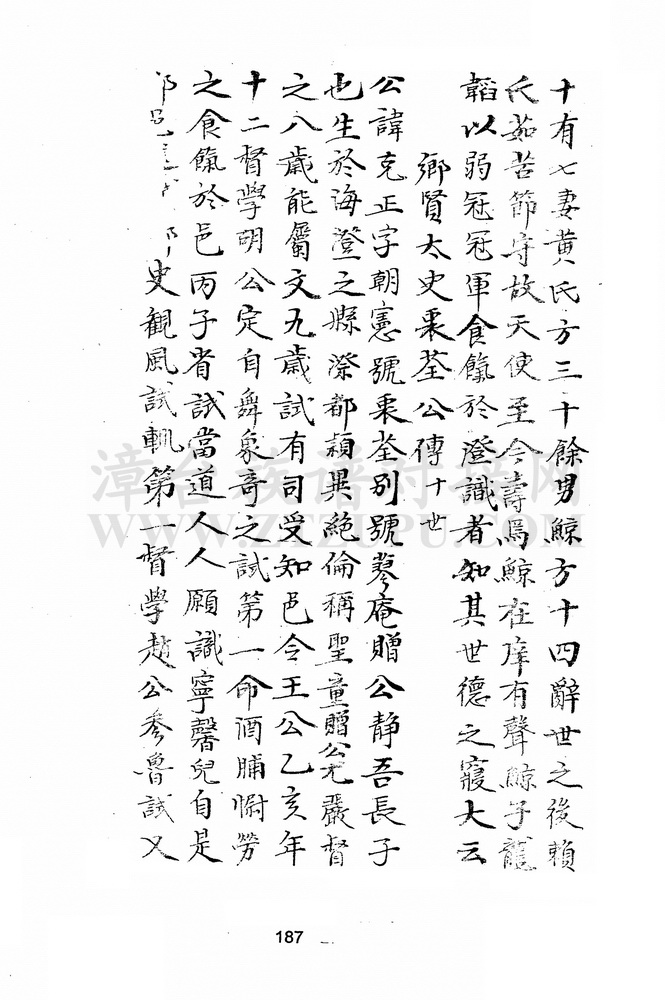 十有七妻黃氏方三十餘男鯨方十四辭世之後賴
氏茹苦節守故天使至今壽焉鯨在庠有聲鯨子龍
韜以弱冠冠軍食餼於澄識者知其世德之寢大云
鄉賢太史棗荃公傳十世
公諱克正字朝憲號棗荃別號蓼庵贈公靜吾長子
也生於海澄之縣滐都穎異絕倫稱聖童贈公尤嚴督
之八歲能屬文九歲試有司受知邑令王公乙亥年
十二督學明公定自舞象奇之試第一命酒脯慰勞
之食餼於邑丙子省試當道人人願識寧馨兒自是
史觀風試輒第一督學趙公參魯試又
漳台族谱对接网
WWW.ZTZUPU.COM
187